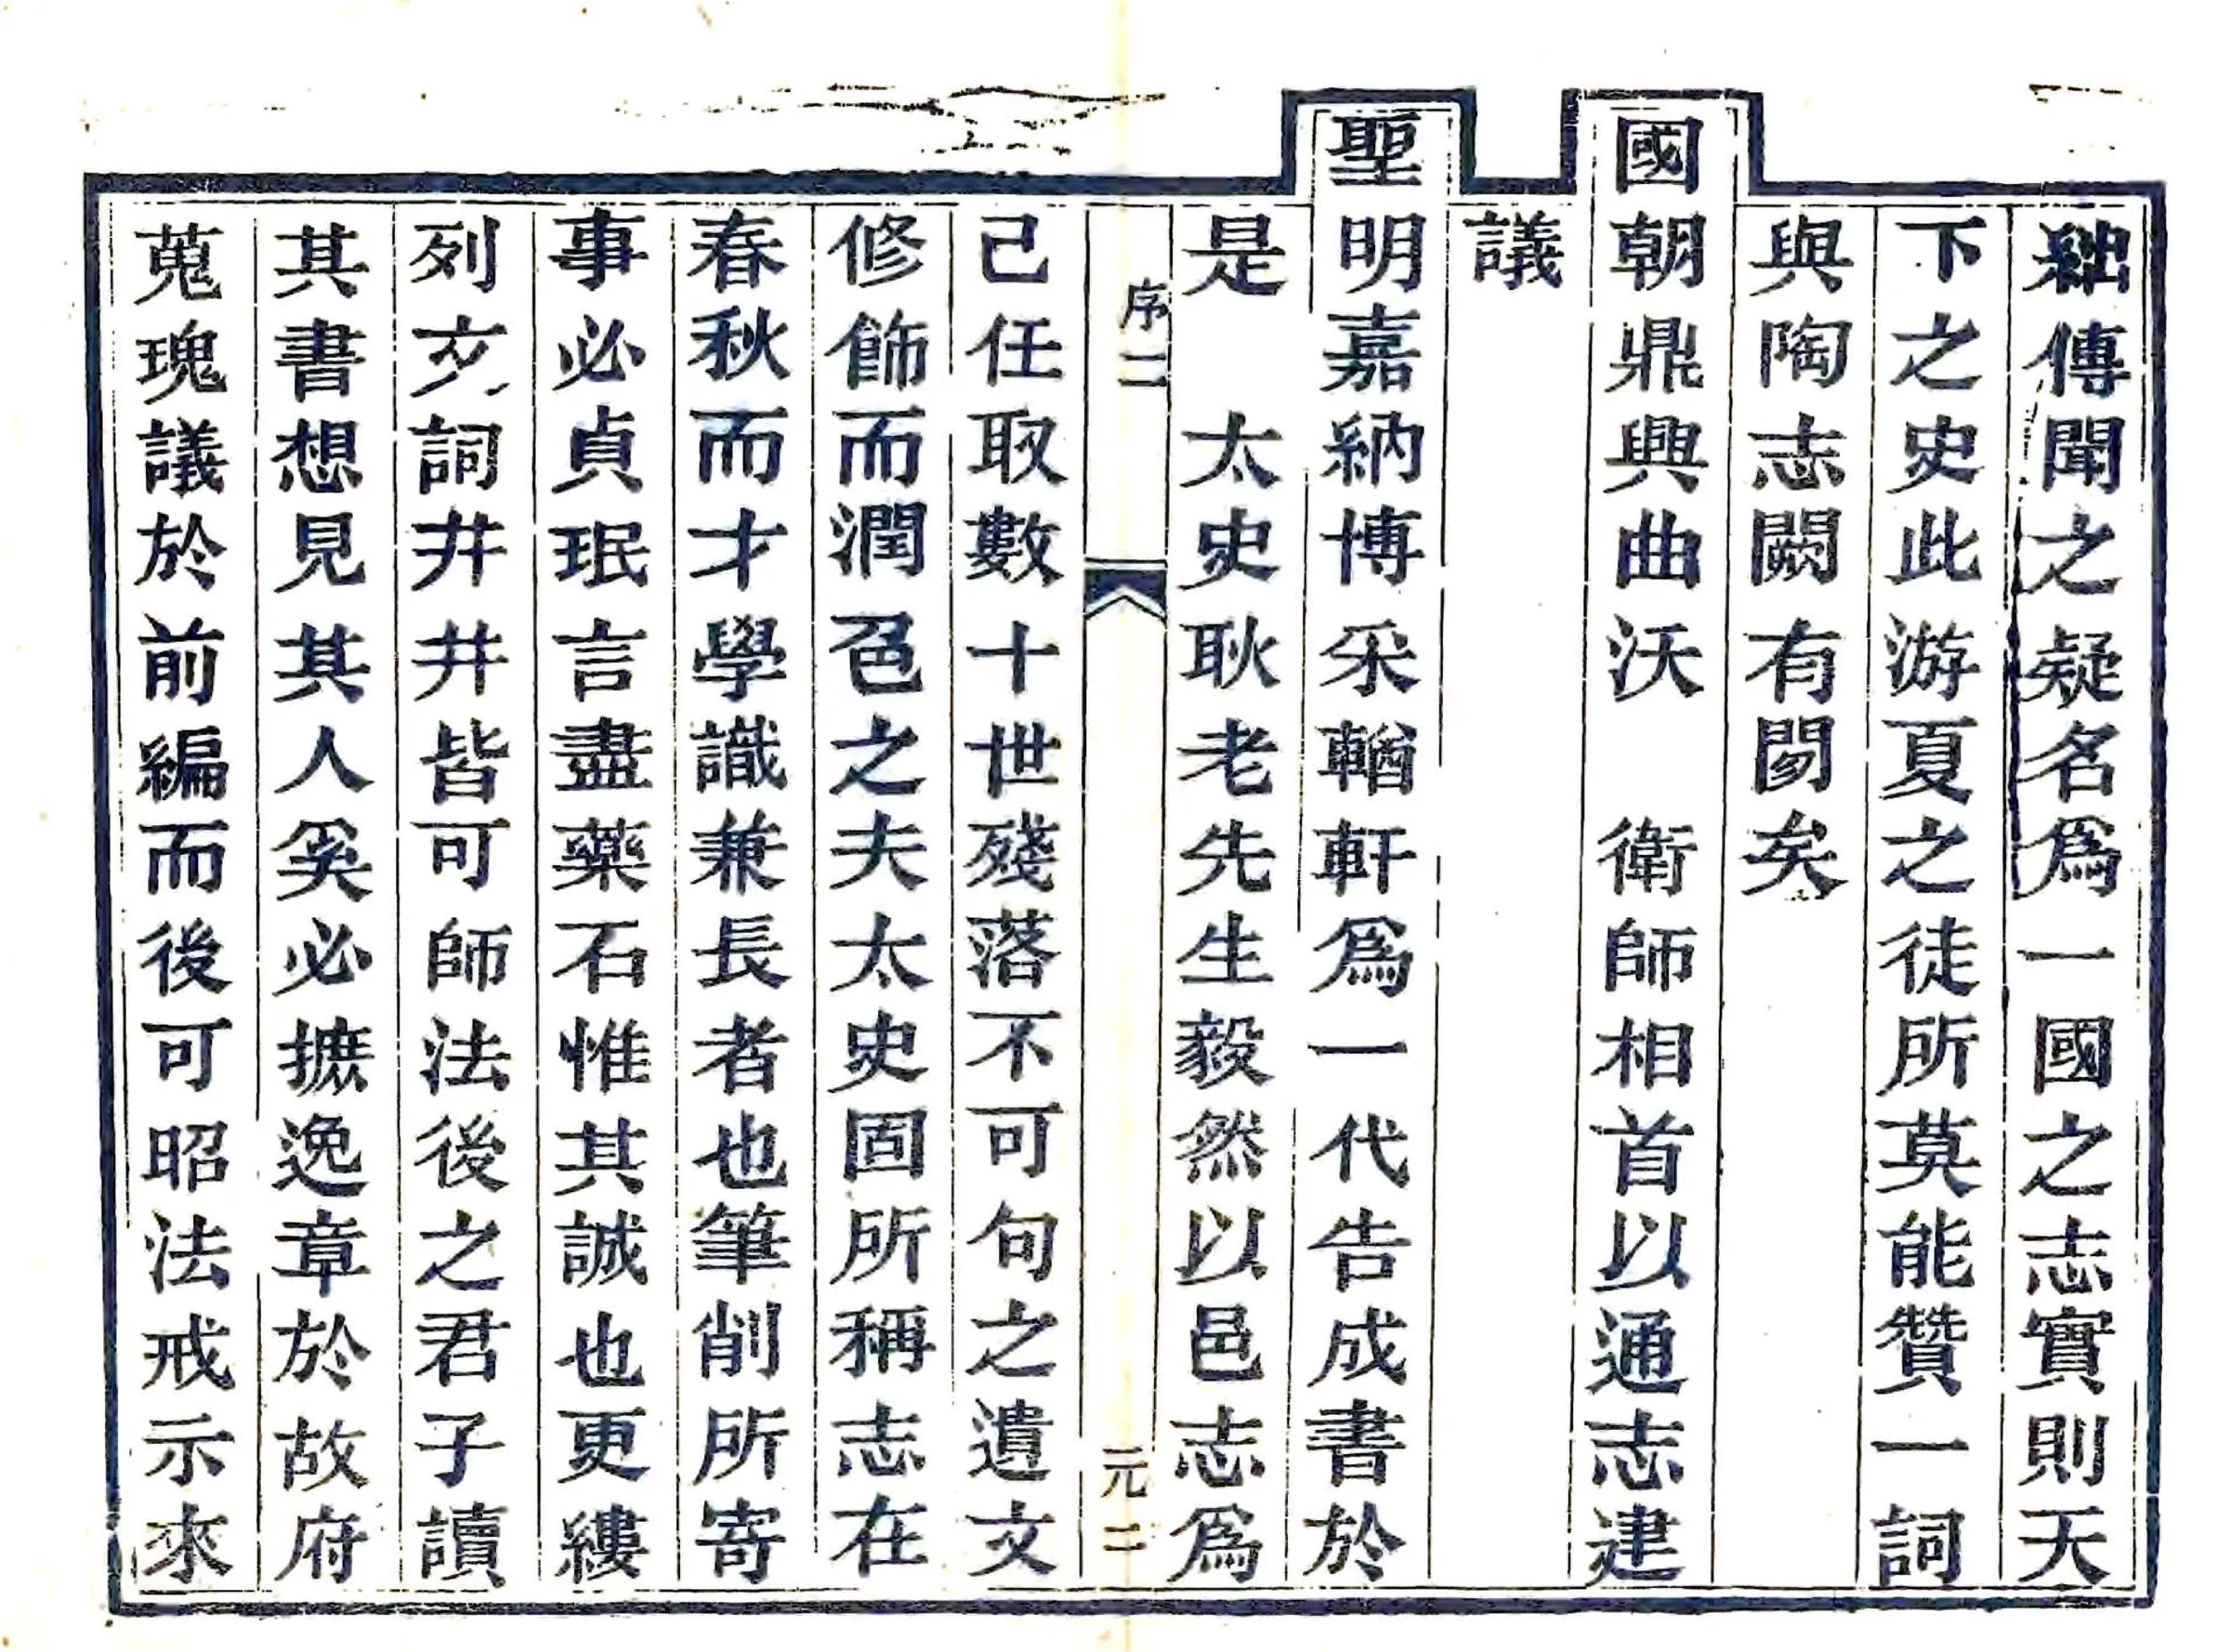 絀傳聞之疑名爲一國之志實則天
下之史此游夏之徒所莫能贊一詞
與陶志闕有閒矣
國朝鼎興曲沃 衛師相首以通志建
議
聖明嘉納博采輶軒爲一代告成書於
是 太史耿老先生毅然以邑志爲
序二
元二
己任取數十世殘落不可句之遺文
修飾而潤色之夫太史固所稱志在
春秋而才學識兼長者也筆削所寄
事必貞珉言盡藥石惟其誠也更縷
列亥詞井井皆可師法後之君子讀
其書想見其人奚必摭逸章於故府
蒐瑰議於前編而後可昭法戒示來